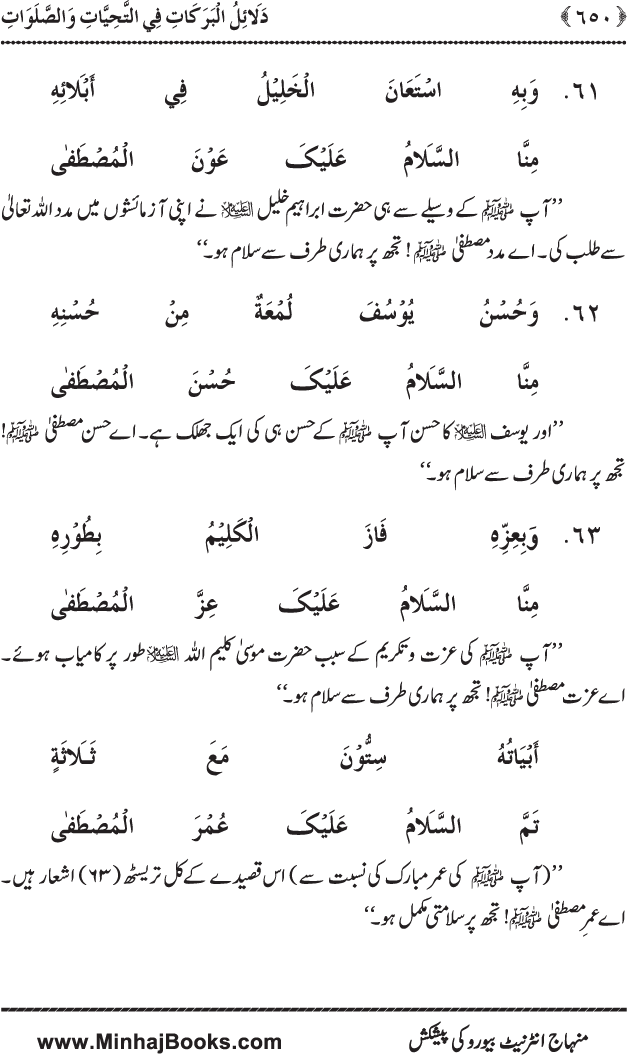 ﴿٦٥٠﴾ دَلَائِلُ الْبَرَكَاتِ فِي التَّحِيَّاتِ وَالصَّلَوَاتِ
٦١. وَبِهِ اسْتَعَانَ الْخَلِيْلُ فِي أَبْلَائِهِ
مِنَّا السَّلَامُ عَلَيْکَ عَوْنَ الْمُصْطَفٰى
’’آپ ﷺ کے وسیلے سے ہی حضرت ابراہیم خلیل علیہ السلام نے اپنی آزمائشوں میں مدد اللہ تعالیٰ
سے طلب کی۔ اے مددِ مصطفیٰ ﷺ! تجھ پر ہماری طرف سے سلام ہو۔‘‘
٦٢. وَحُسْنُ يُوْسُفَ لُمْعَةٌ مِنْ حُسْنِهِ
مِنَّا السَّلَامُ عَلَيْکَ حُسْنَ الْمُصْطَفٰى
’’اور یوسف علیہ السلام کا حسن آپ ﷺ کے حسن ہی کی ایک جھلک ہے۔ اے حسن مصطفیٰ ﷺ!
تجھ پر ہماری طرف سے سلام ہو۔‘‘
٦٣. وَبِعِزِّهِ فَازَ الْكَلِيْمُ بِطُوْرِهِ
مِنَّا السَّلَامُ عَلَيْکَ عِزَّ الْمُصْطَفٰى
’’آپ ﷺ کی عزت و تکریم کے سبب حضرت موسیٰ کلیم اللہ علیہ السلام طور پر کامیاب ہوئے۔
اے عزت مصطفیٰ ﷺ! تجھ پر ہماری طرف سے سلام ہو۔‘‘
أَبْيَاتُهُ سِتُّوْنَ مَعَ ثَلَاثَةٍ
تَمَّ السَّلَامُ عَلَيْکَ عُمْرَ الْمُصْطَفٰى
’’(آپ ﷺ کی عمر مبارک کی نسبت سے) اس قصیدے کے کل تریسٹھ (٦٣) اشعار ہیں۔
اے عمرِ مصطفیٰ ﷺ! تجھ پر سلامتی مکمل ہو۔‘‘
منہاج انٹرنیٹ بیورو کی پیشکش www.MinhajBooks.com